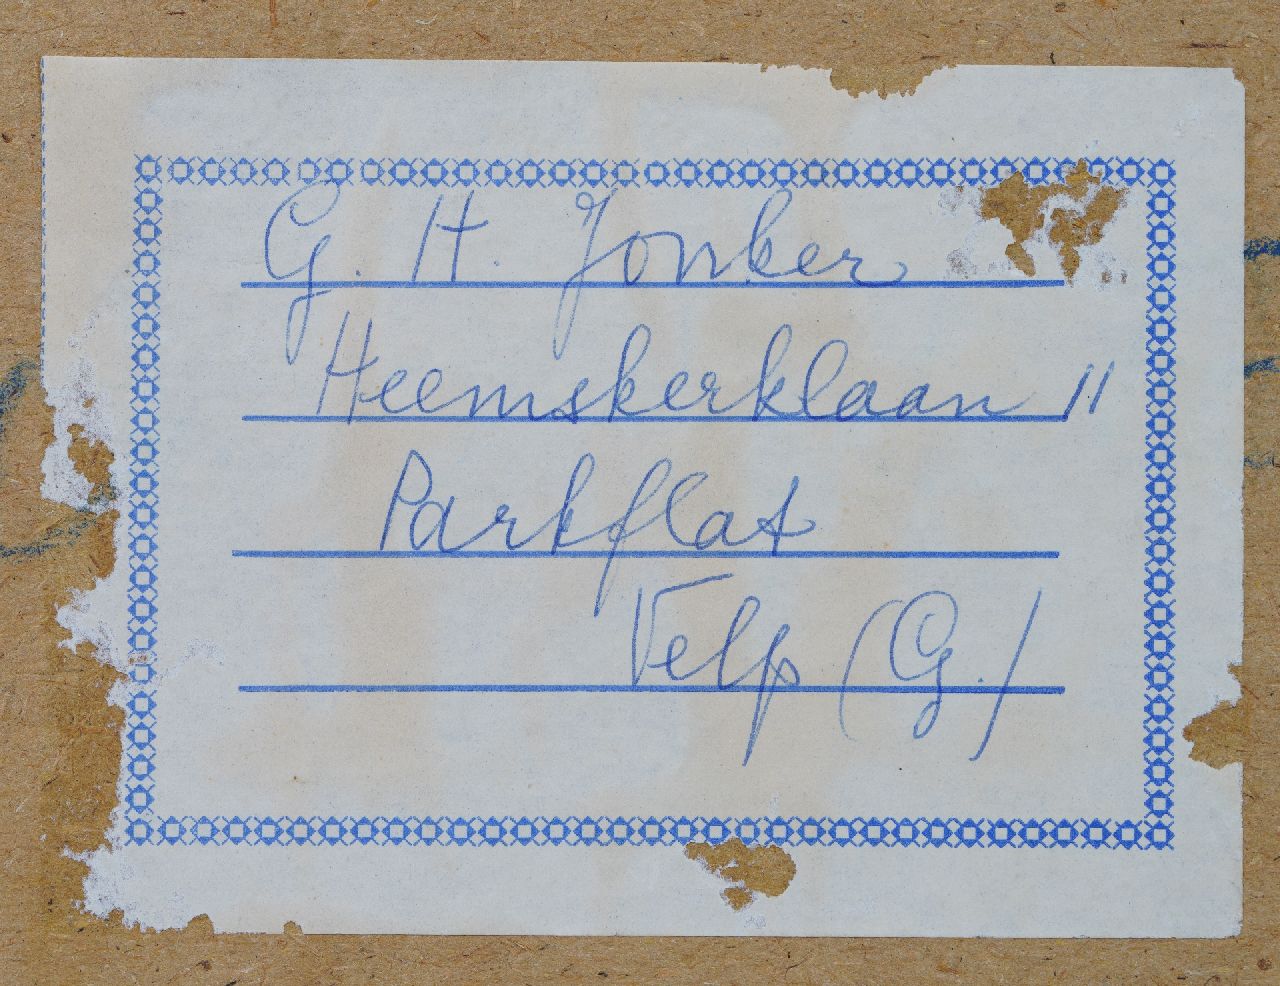 G. H. Jonker
Heemskerklaan 11
Parkflat
Velp (G.)